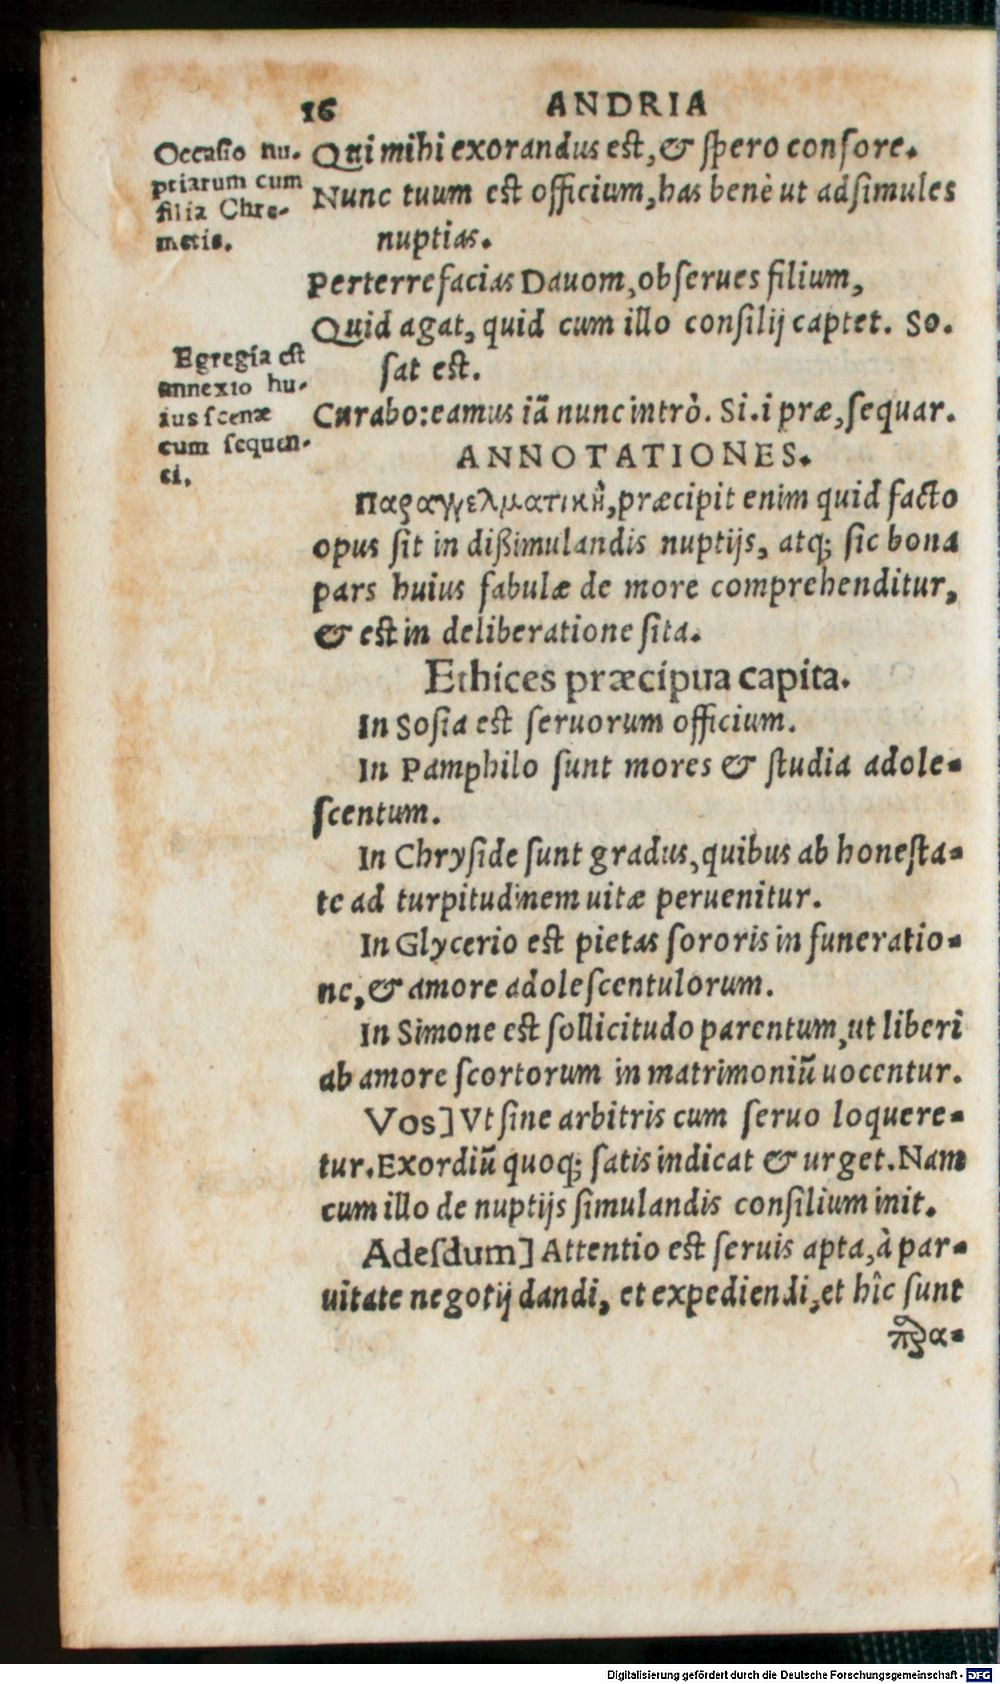 16 ANDRIA
Occasio nu-
ptiarum cum
filia Chre-
metis.
Qui mihi exorandus est, & spero confore.
Nunc tuum est officium, has benè ut adsimules
nuptias.
Perterrefacias Dauom, obserues filium,
Quid agat, quid cum illo consilij captet. So.
sat est.
Egregia est
annexio hu-
ius scenæ
cum sequen-
ti.
Curabo: eamus iã nunc intrò. Si. i præ, sequar.
ANNOTATIONES.
Παραγγελματικὴ, præcipit enim quid facto
opus sit in dißimulandis nuptijs, atq; sic bona
pars huius fabulæ de more comprehenditur,
& est in deliberatione sita.
Ethices præcipua capita.
In Sosia est seruorum officium.
In Pamphilo sunt mores & studia adole-
scentum.
In Chryside sunt gradus, quibus ab honesta-
te ad turpitudinem uitæ peruenitur.
In Glycerio est pietas sororis in funeratio-
ne, & amore adolescentulorum.
In Simone est sollicitudo parentum, ut liberi
ab amore scortorum in matrimoniũ uocentur.
Vos] Vt sine arbitris cum seruo loquere-
tur. Exordiũ quoq; satis indicat & urget. Nam
cum illo de nuptijs simulandis consilium init.
Adesdum] Attentio est seruis apta, à par-
uitate negotij dandi, et expediendi, et hîc sunt
πρα-
Digitalisierung gefördert durch die Deutsche Forschungsgemeinschaft - DFG